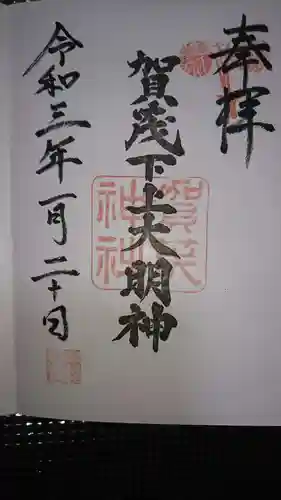 奉拝
賀茂下上大明神
令和三年一月二十日